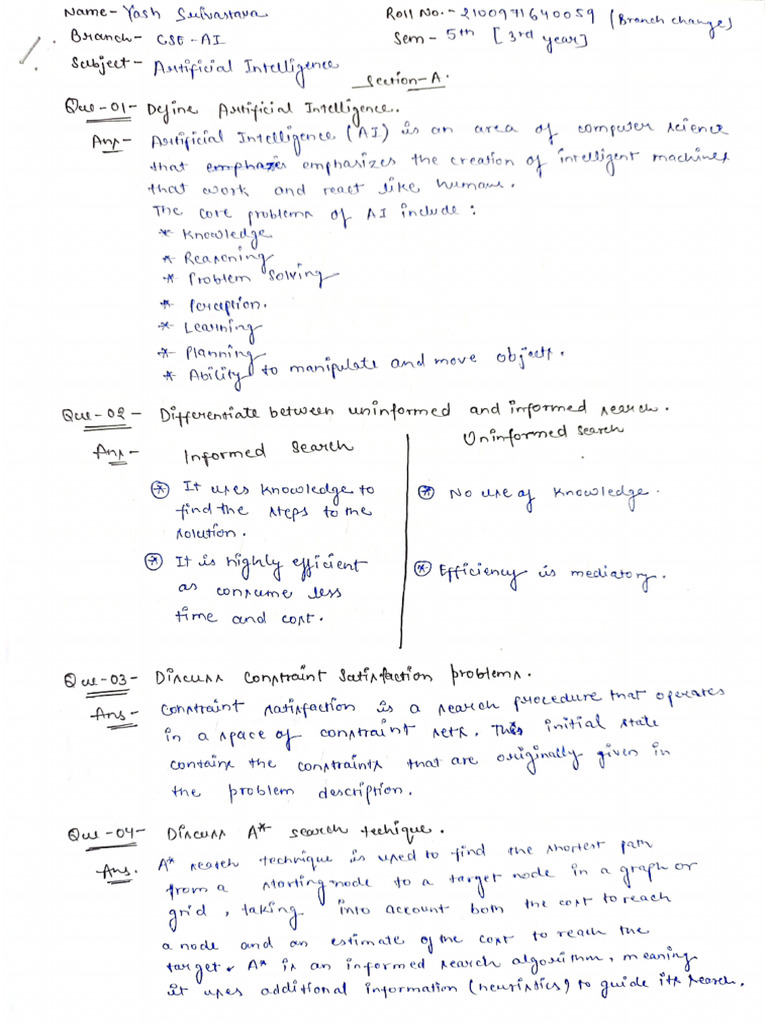 Name- Yash Srivastava
Roll No.- 2100971640059 (Branch change)
Branch- CSE-AI
Sem- 5th [3rd year]
Subject- Artificial Intelligence
Section-A.
Que-01- Define Artificial Intelligence.
Ans- Artificial Intelligence (AI) is an area of computer science
that emphazis emphasizes the creation of intelligent machines
that work and react like humans.
The core problems of AI include:
* Knowledge
* Reasoning
* Problem solving
* Perception.
* Learning
* Planning
* Ability to manipulate and move objects.
Que-02- Differentiate between uninformed and informed search.
Ans- Informed Search
Uninformed Search
* It uses knowledge to
find the steps to the
solution.
* No use of knowledge.
* It is highly efficient
as consume less
time and cost.
* Efficiency is mediatory.
Que-03- Discuss Constraint Satisfaction problems.
Ans- Constraint satisfaction is a search procedure that operates
in a space of constraint sets. This initial state
contains the constraints that are originally given in
the problem description.
Que-04- Discuss A* search techique.
Ans. A* search technique is used to find the shortest path
from a starting node to a target node in a graph or
grid, taking into account both the cost to reach
a node and an estimate of the cost to reach the
target. A* is an informed search algorithm, meaning
it uses additional information (heuristics) to guide its search.